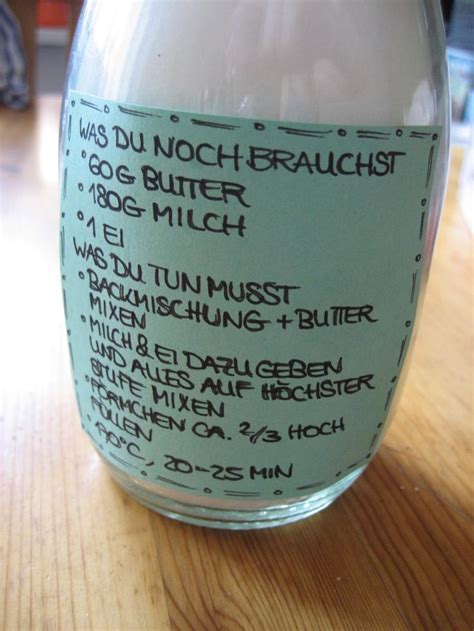 WAS DU NOCH BRAUCHST
• 60G BUTTER
• 180G MILCH
• 1 EI
WAS DU TUN MUSST
• BACKMISCHUNG + BUTTER
MIXEN
• MILCH & EI DAZU GEBEN
UND ALLES AUF HÖCHSTER
STUFE MIXEN
• FÖRMCHEN CA. 2/3 HOCH
FÜLLEN
• 170°C, 20-25 MIN